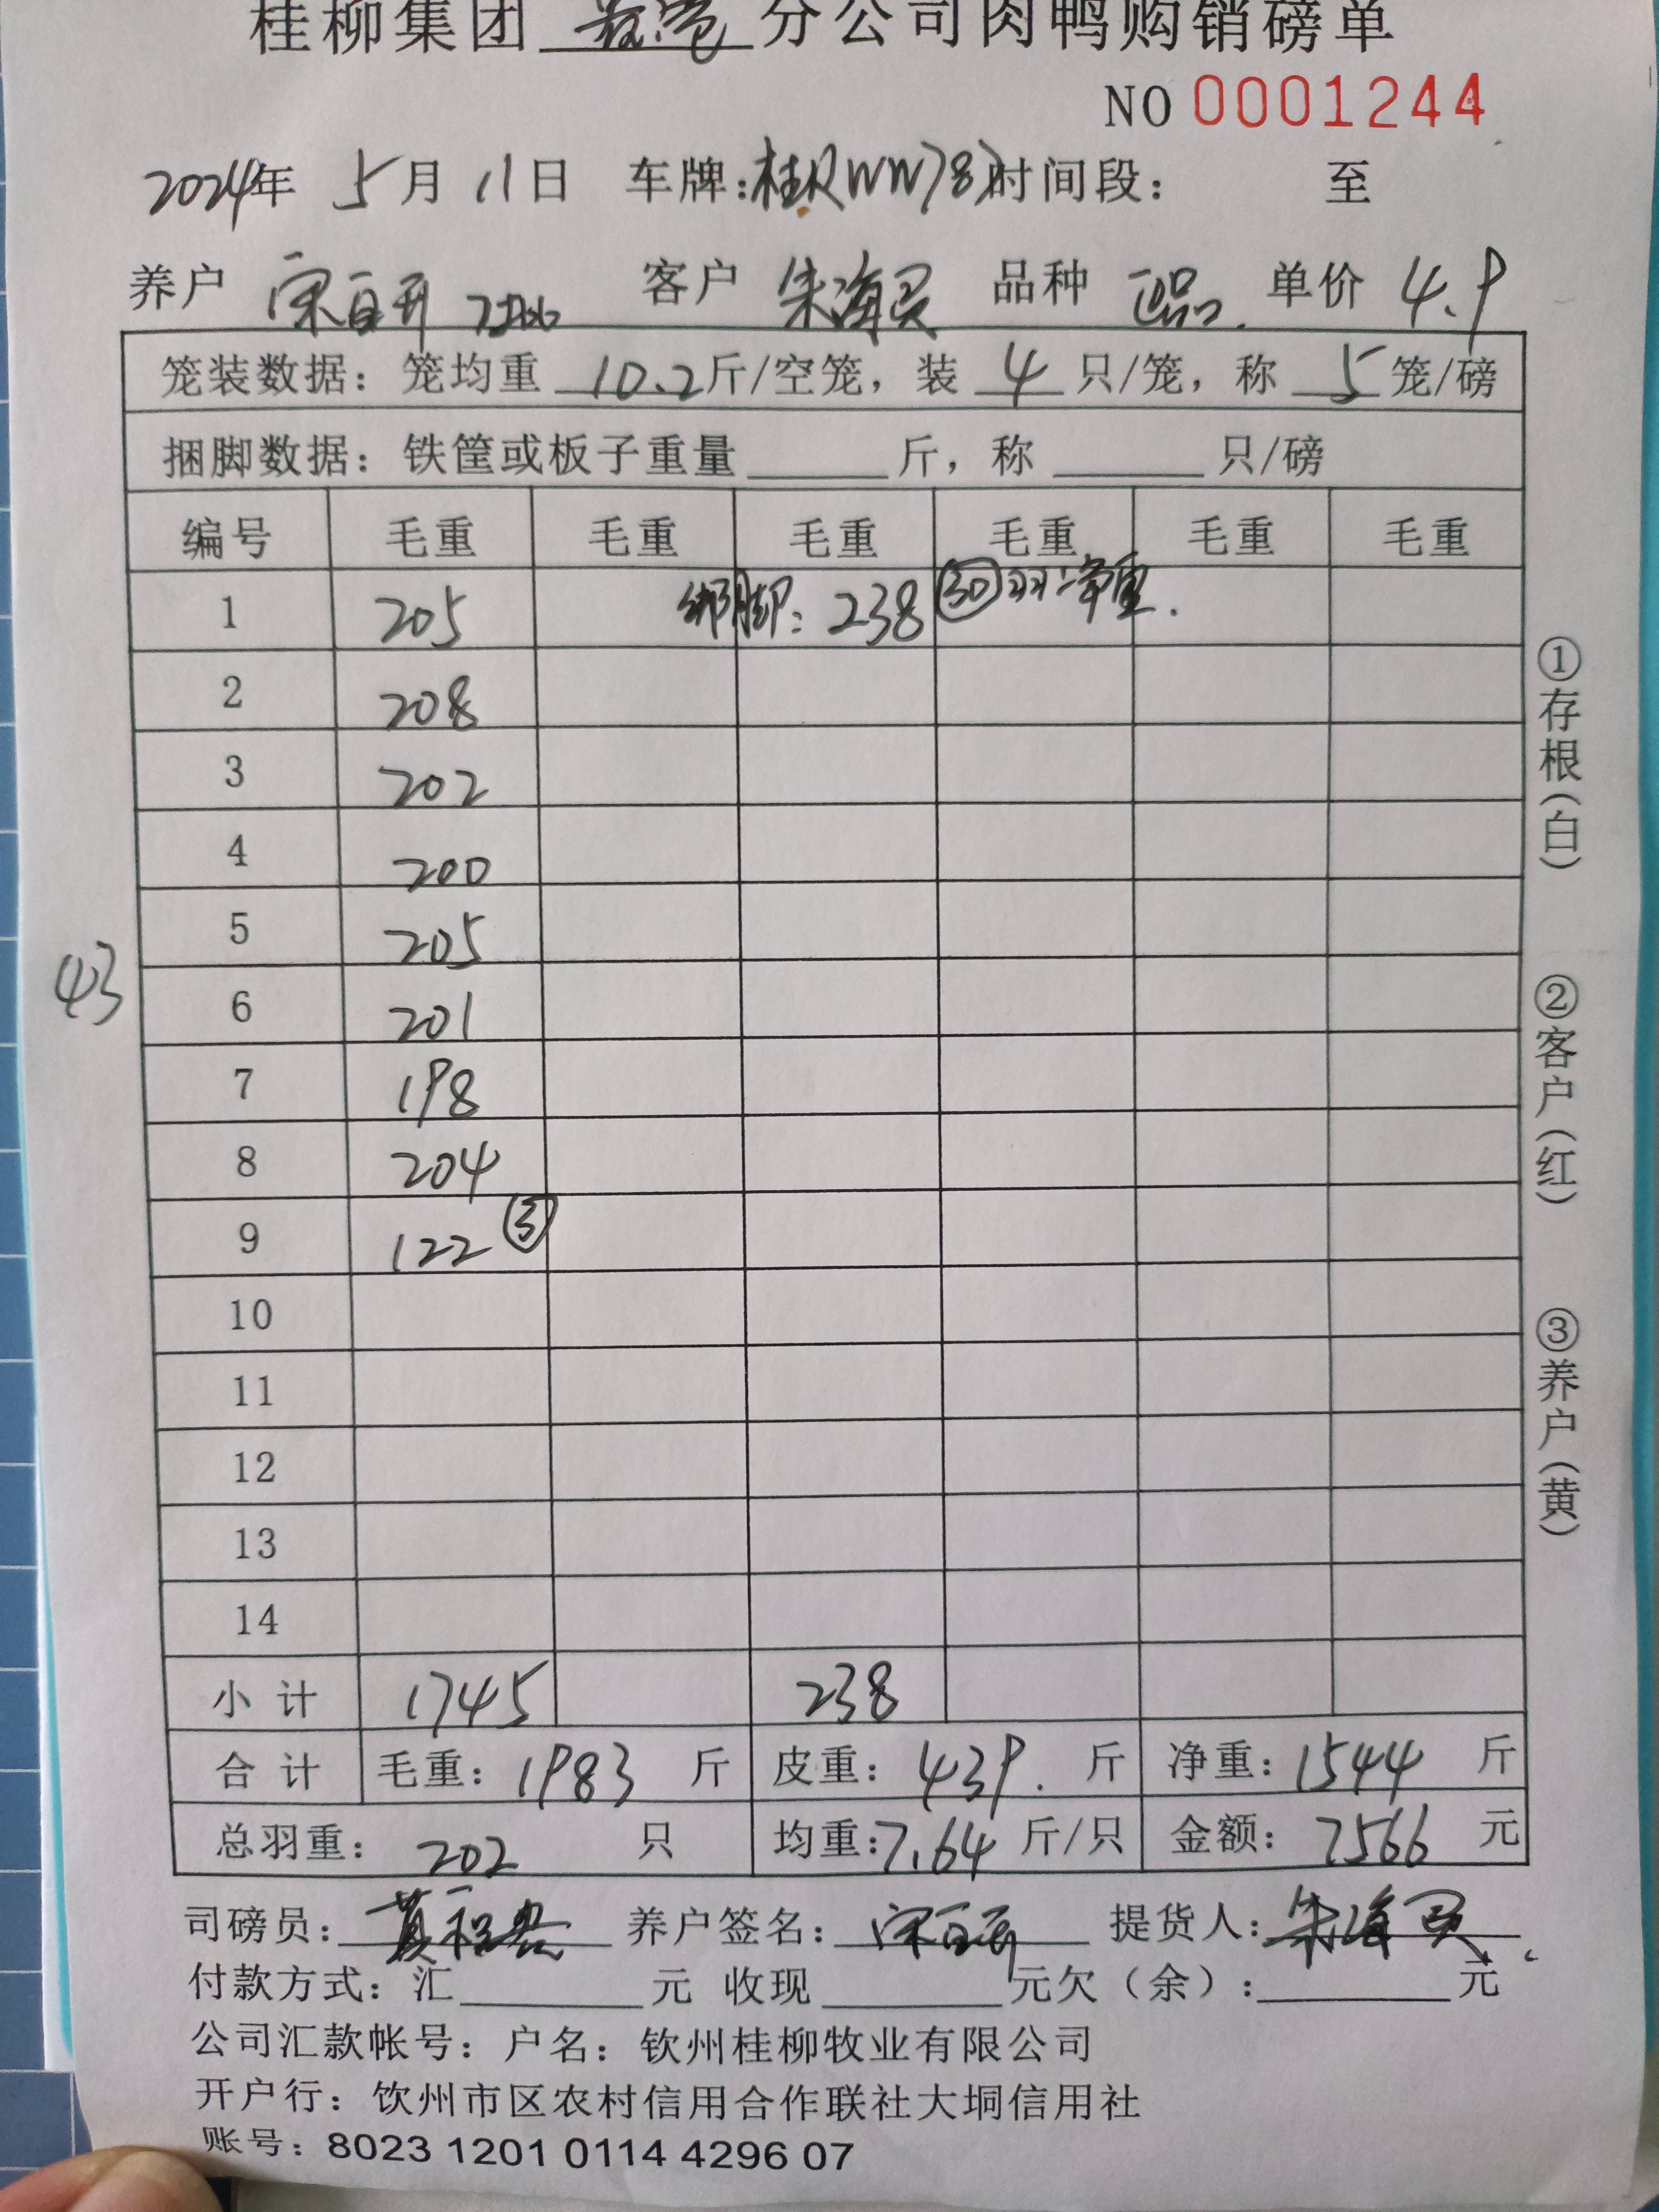 桂柳集团 分公司肉鸭购销磅单
NO 0001244
2024年 5月 11日 车牌:桂RWW787 时间段: 至
养户 宋百升 客户 朱海贝 品种 正品. 单价 4.9
笼装数据: 笼均重 10.2斤/空笼, 装 4 只/笼, 称 5 笼/磅
捆脚数据: 铁筐或板子重量 斤, 称 只/磅
编号 毛重 毛重 毛重 毛重 毛重 毛重
1 205 绑脚: 238 30羽净重.
2 208
3 202
4 200
5 205
43
6 201
7 198
8 204
9 122 3
10
11
12
13
14
小计 1745 238
合计 毛重: 1983 斤 皮重: 439. 斤 净重: 1544 斤
总羽重: 202 只 均重:7.64 斤/只 金额: 7566 元
司磅员: 养户签名: 宋百升 提货人: 朱海贝
付款方式: 汇 元 收现 元欠(余): 元
公司汇款帐号: 户名: 钦州桂柳牧业有限公司
开户行: 钦州市区农村信用合作联社大垌信用社
账号: 8023 1201 0114 4296 07
①存根(白)
②客户(红)
③养户(黄)